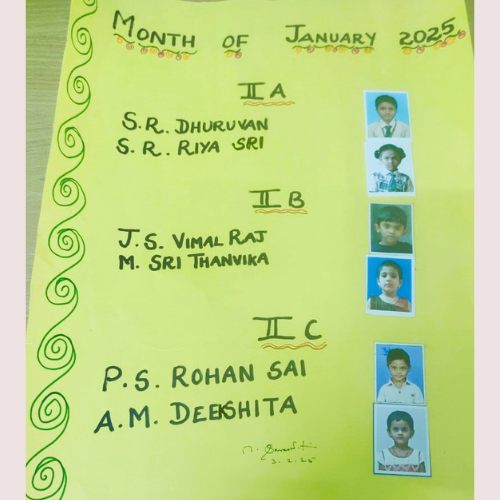 MONTH OF JANUARY 2025
II A
S.R. DHURUVAN
S.R. RIYA SRI
II B
J.S. VIMAL RAJ
M. SRI THANVIKA
II C
P.S. ROHAN SAI
A.M. DEEKSHITA
3.2.25